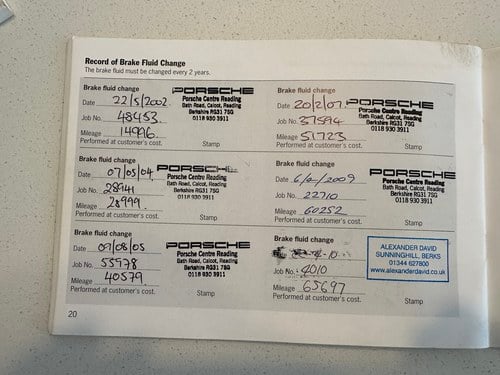 Record of Brake Fluid Change
The brake fluid must be changed every 2 years.
Brake fluid change
Date 22/5/2002
Job No. 48453
Mileage 14996
Performed at customer's cost.
PORSCHE
Porsche Centre Reading
Bath Road, Calcot, Reading
Berkshire RG31 7SG
0118 930 3911
Stamp
Brake fluid change
Date 07/05/04
Job No. 28941
Mileage 28999
Performed at customer's cost.
PORSCHE
Porsche Centre Reading
Bath Road, Calcot, Reading
Berkshire RG31 7SG
0118 930 3911
Stamp
Brake fluid change
Date 09/08/05
Job No. 55978
Mileage 40579
Performed at customer's cost.
PORSCHE
Porsche Centre Reading
Bath Road, Calcot, Reading
Berkshire RG31 7SG
0118 930 3911
Stamp
Brake fluid change
Date 20/2/07
Job No. 37594
Mileage 51723
Performed at customer's cost.
PORSCHE
Porsche Centre Reading
Bath Road, Calcot, Reading
Berkshire RG31 7SG
0118 930 3911
Stamp
Brake fluid change
Date 2009
Job No. 22710
Mileage 60252
Performed at customer's cost.
PORSCHE
Porsche Centre Reading
Bath Road, Calcot, Reading
Berkshire RG31 7SG
0118 930 3911
Stamp
Brake fluid change
Job No. 4010
Mileage 65697
Performed at customer's cost.
ALEXANDER DAVID
SUNNINGHILL, BERKS
01344 627800
www.alexanderdavid.co.uk
Stamp
20